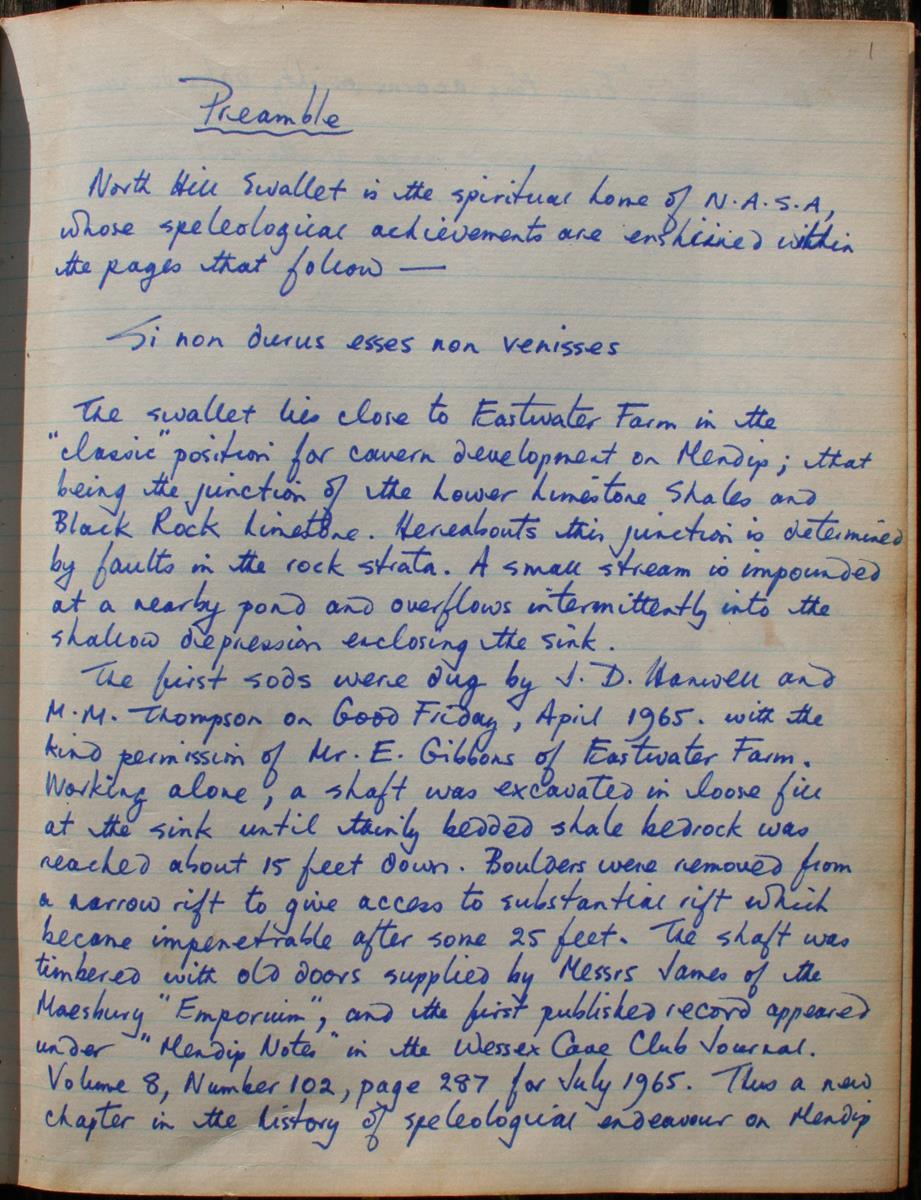 1
Preamble
North Hill Swallet is the spiritual home of N.A.S.A,
whose speleological achievements are enshrined within
the pages that follow —
Si non durus esses non venisses
The swallet lies close to Eastwater Farm in the
"classic" position for cavern development on Mendip; that
being the junction of the Lower Limestone Shales and
Black Rock Limestone. Hereabouts this junction is determined
by faults in the rock strata. A small stream is impounded
at a nearby pond and overflows intermittently into the
shallow depression enclosing the sink.
The first sods were dug by J. D. Hanwell and
M.M. Thompson on Good Friday, April 1965. with the
kind permission of Mr. E. Gibbons of Eastwater Farm.
Working alone, a shaft was excavated in loose fill
at the sink until thinly bedded shale bedrock was
reached about 15 feet down. Boulders were removed from
a narrow rift to give access to substantial rift which
became impenetrable after some 25 feet. The shaft was
timbered with old doors supplied by Messrs James of the
Maesbury "Emporium", and the first published record appeared
under "Mendip Notes" in the Wessex Cave Club Journal.
Volume 8, Number 102, page 287 for July 1965. Thus a new
chapter in the history of speleological endeavour on Mendip